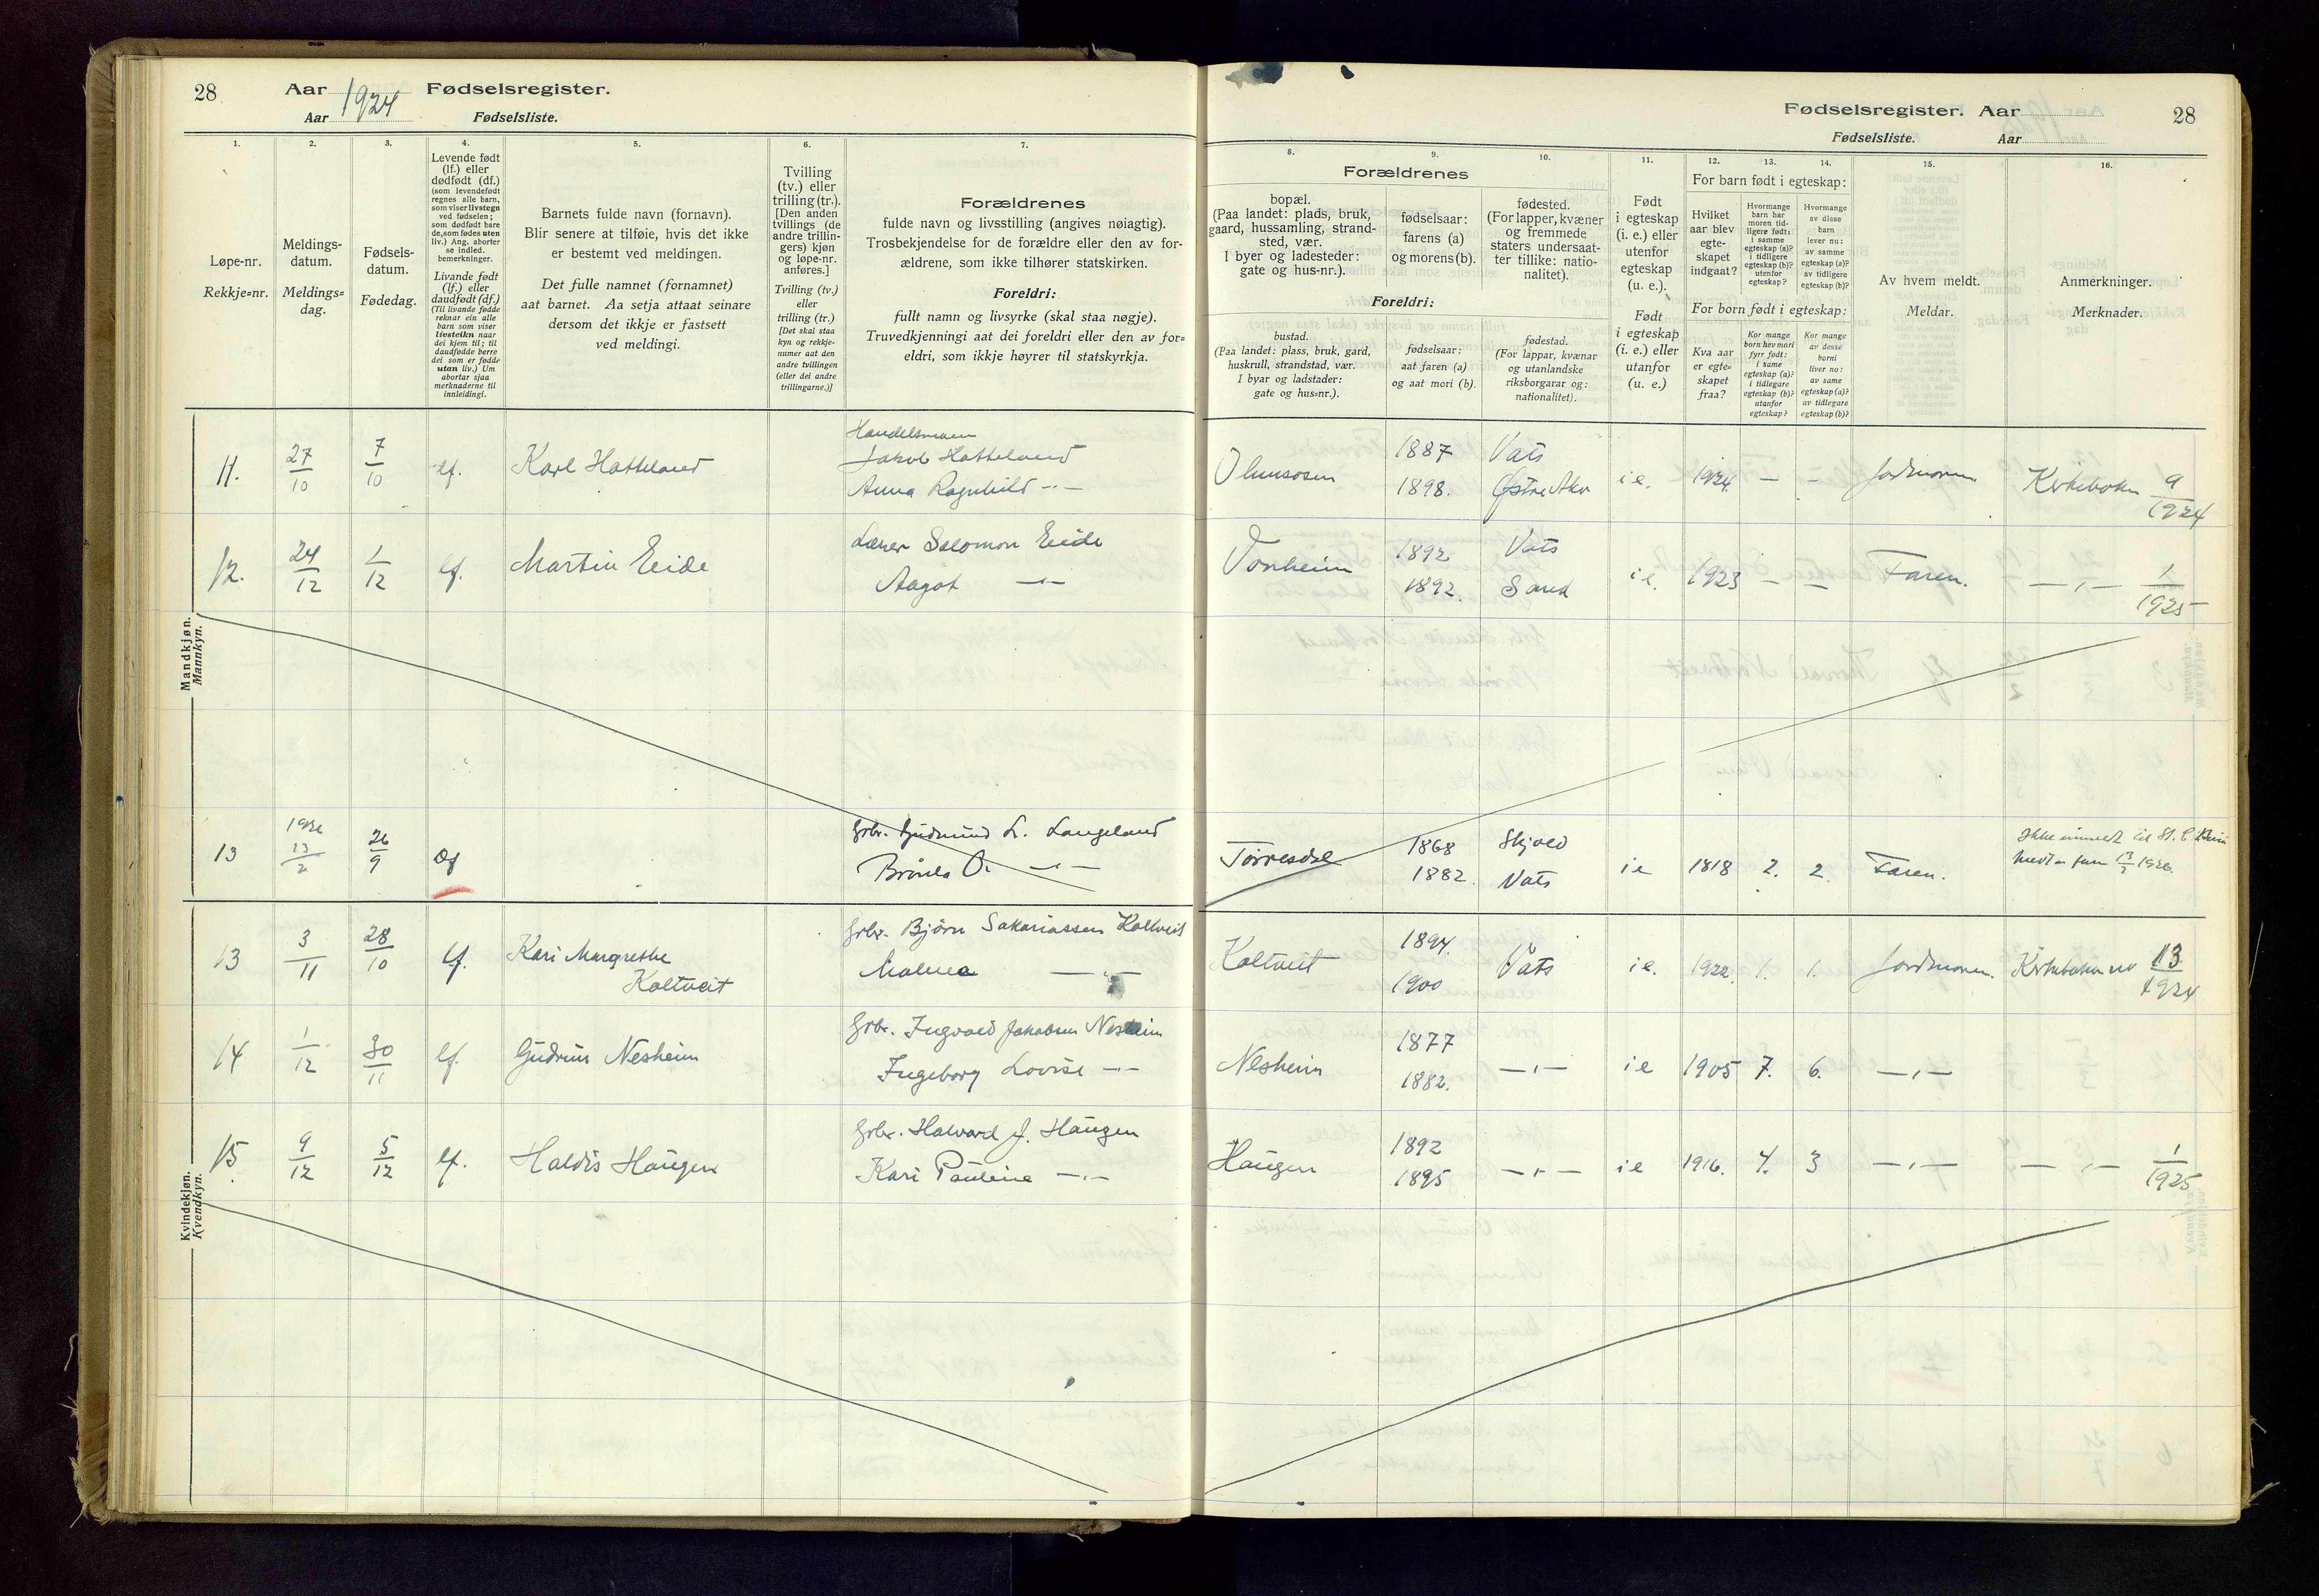 28
Aar 1924 Fødselsregister.
Aar Fødselsliste.
1.
2.
3.
4.
5.
6.
7.
Løpe-nr.
Rekkje=nr.
Meldings-
datum.
Meldings=
dag.
Fødsels-
datum.
Fødedag.
Levende født
(lf.) eller
dødfødt (df.)
(som levendefødt
regnes alle barn,
som viser livstegn
ved fødselen;
som dødfødt bare
de, som fødes uten
liv.) Ang. aborter
se indled.
bemerkninger.
Livande født
(lf.) eller
daudfødt (df.)
(Til livande fødde
reknar ein alle
barn som viser
livsteikn naar
dei kjem til; til
daudfødde berre
dei som er fødde
utan liv.) Um
abortar sjaa
merknaderne til
innleidingi.
Barnets fulde navn (fornavn).
Blir senere at tilføie, hvis det ikke
er bestemt ved meldingen.
Det fulle namnet (fornamnet)
aat barnet. Aa setja attaat seinare
dersom det ikkje er fastsett
ved meldingi.
Tvilling
(tv.) eller
trilling (tr.).
[Den anden
tvillings (de
andre trillin-
gers) kjøn
og løpe-nr.
anføres.]
Tvilling (tv.)
eller
trilling (tr.)
[Det skal staa
kyn og rekkje-
numer aat den
andre tvillingen
(eller dei andre
trillingarne.)]
Forældrenes
fulde navn og livsstilling (angives nøiagtig).
Trosbekjendelse for de forældre eller den av for-
ældrene, som ikke tilhører statskirken.
Foreldri:
fullt namn og livsyrke (skal staa nøgje).
Truvedkjenningi aat dei foreldri eller den av for=
eldri, som ikkje høyrer til statskyrkja.
Mandkjøn.
Mannkyn.
11. 27/10 7/10 lf. Karl Hatteland Handelsmann
Jakob Hatteland
Anna Ragnhild -"-
12. 24/12 1/12 lf. Martin Eide Lærer Salomon Eide
Aagot -"-
13 1926 13/2 26/9 df Grbr. Gudmund L. Langeland
O. -"-
Kvindekjøn.
Kvendkyn.
13 3/11 28/10 lf. Kari Margrethe
Koltveit
Grbr. Bjørn Sakariassen Koltveit
Malena -"-
14 1/12 30/11 lf. Gudrun Nesheim Grbr. Ingvald Jakobsen Nesheim
Ingeborg Lovise -"-
15. 9/12 5/12 lf. Haldis Haugen Grbr. Halvard J. Haugen
Kari Pauline -"-
Fødselsregister. Aar
28
Fødselsliste. Aar
8.
9.
10.
11.
12.
13.
14.
15.
16.
Forældrenes
bopæl.
(Paa landet: plads, bruk,
gaard, hussamling, strand-
sted, vær.
I byer og ladesteder:
gate og hus-nr.).
fødselsaar:
farens (a)
og morens (b).
fødested.
(For lapper, kvæner
og fremmede
staters undersaat-
ter tillike: natio-
nalitet).
Foreldri:
bustad.
(Paa landet: plass, bruk, gard,
huskrull, strandstad, vær.
I byar og ladstader:
gate og hus=nr.).
fødselsaar:
aat faren (a)
og aat mori (b).
fødestad.
(For lappar, kvænar
og utanlandske
riksborgarar og:
nationalitet).
Født
i egteskap
(i. e.) eller
utenfor
egteskap
(u. e.).
Født
i egteskap
(i. e.) eller
utanfor
(u. e.)
For barn født i egteskap:
Hvilket
aar blev
egte-
skapet
indgaat?
Hvormange
barn har
moren tid-
ligere født:
i samme
egteskap (a)?
i tidligere
egteskap (b)?
utenfor
egteskap?
Hvormange
av disse
barn
lever nu:
av samme
egteskap (a)?
av tidligere
egteskap (b)?
For born født i egteskap:
Kva aar
er egte=
skapet
fraa?
Kor mange
born hev mori
fyrr født:
i same
egteskap (a)?
i tidlegare
egteskap (b)?
utanfor
egteskap?
Kor mange
av desse
borni
liver no:
av same
egteskap (a)?
av tidlegare
egteskap (b)?
Av hvem meldt.
Meldar.
Anmerkninger.
Merknader.
1887 Vats
1898. i e. 1924. - - Jordmoren Kirkeboken 9/1924
1892 Vats
1892. Sand i e. 1923 - - Faren. -"- 1/1925
1868 Skjold
1882. Vats i e 1818 2. 2. Faren.
Ikke
13/2 1926.
Koltveit 1894. 1900 Vats i e. 1922. 1. 1. Jordmoren. Kirkeboken nr 13/1924
Nesheim 1877 1882. -"- i e 1905 7. 6. -"-
Haugen 1892 1895 -"- i e 1916. 4. 3 -"- -"- 1/1925